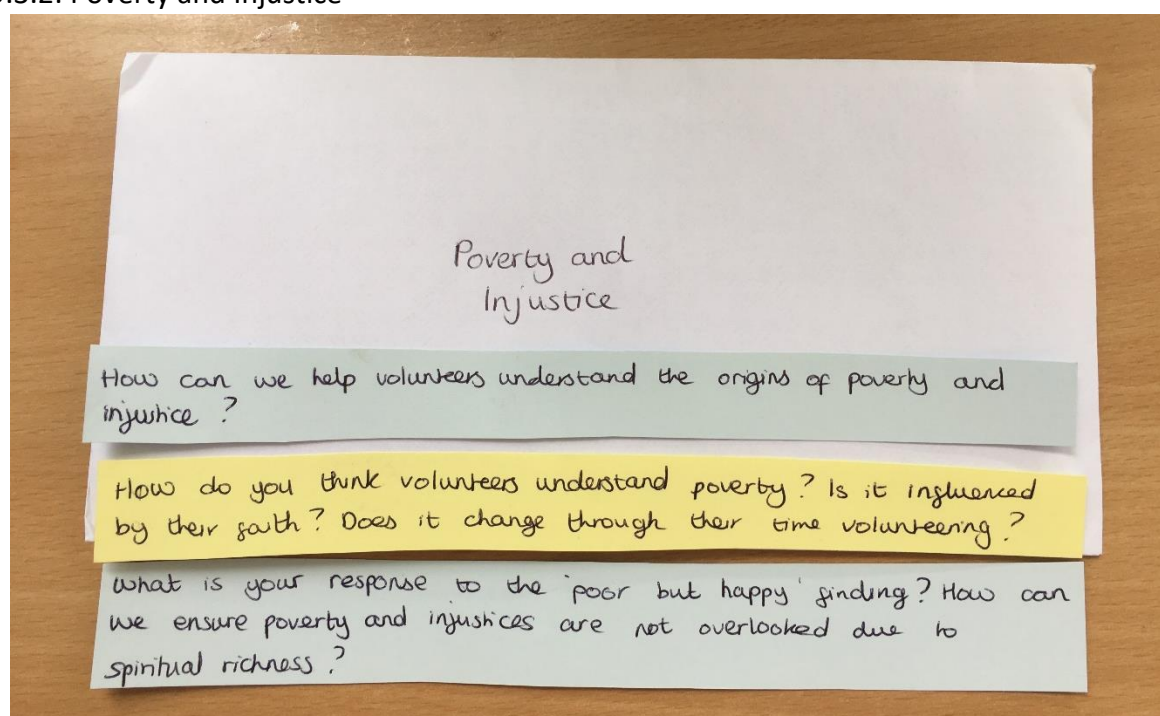 5.3.2. Poverty and Injustice
Poverty and
Injustice
How can we help volunteers understand the origins of poverty and
injustice ?
How do you think volunteers understand poverty? Is it influenced
by their faith? Does it change through their time volunteering?
What is your response to the 'poor but happy' finding? How can
we ensure poverty and injustices are not overlooked due to
spiritual richness?